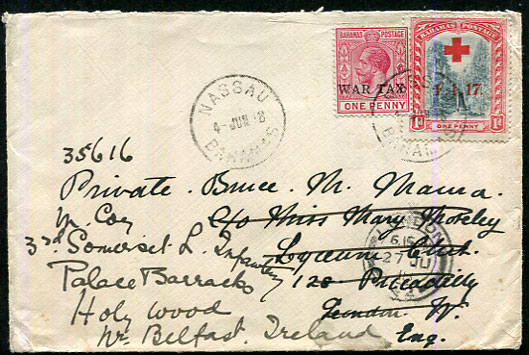 BAHAMAS POSTAGE
WAR TAX
ONE PENNY
BAHAMAS POSTAGE
1.1.17.
1d ONE PENNY 1d
NASSAU
4-JUN 18
BAHAMAS
35616
Private. Bruce. M. Mama
c/o Miss Mary
M. Coy
3rd Somerset L. Infantry
Lyceum Club.
Palace Barracks
128 Piccadilly
Holywood
London W.
Nr. Belfast, Ireland
Eng.
LONDON
27 JU